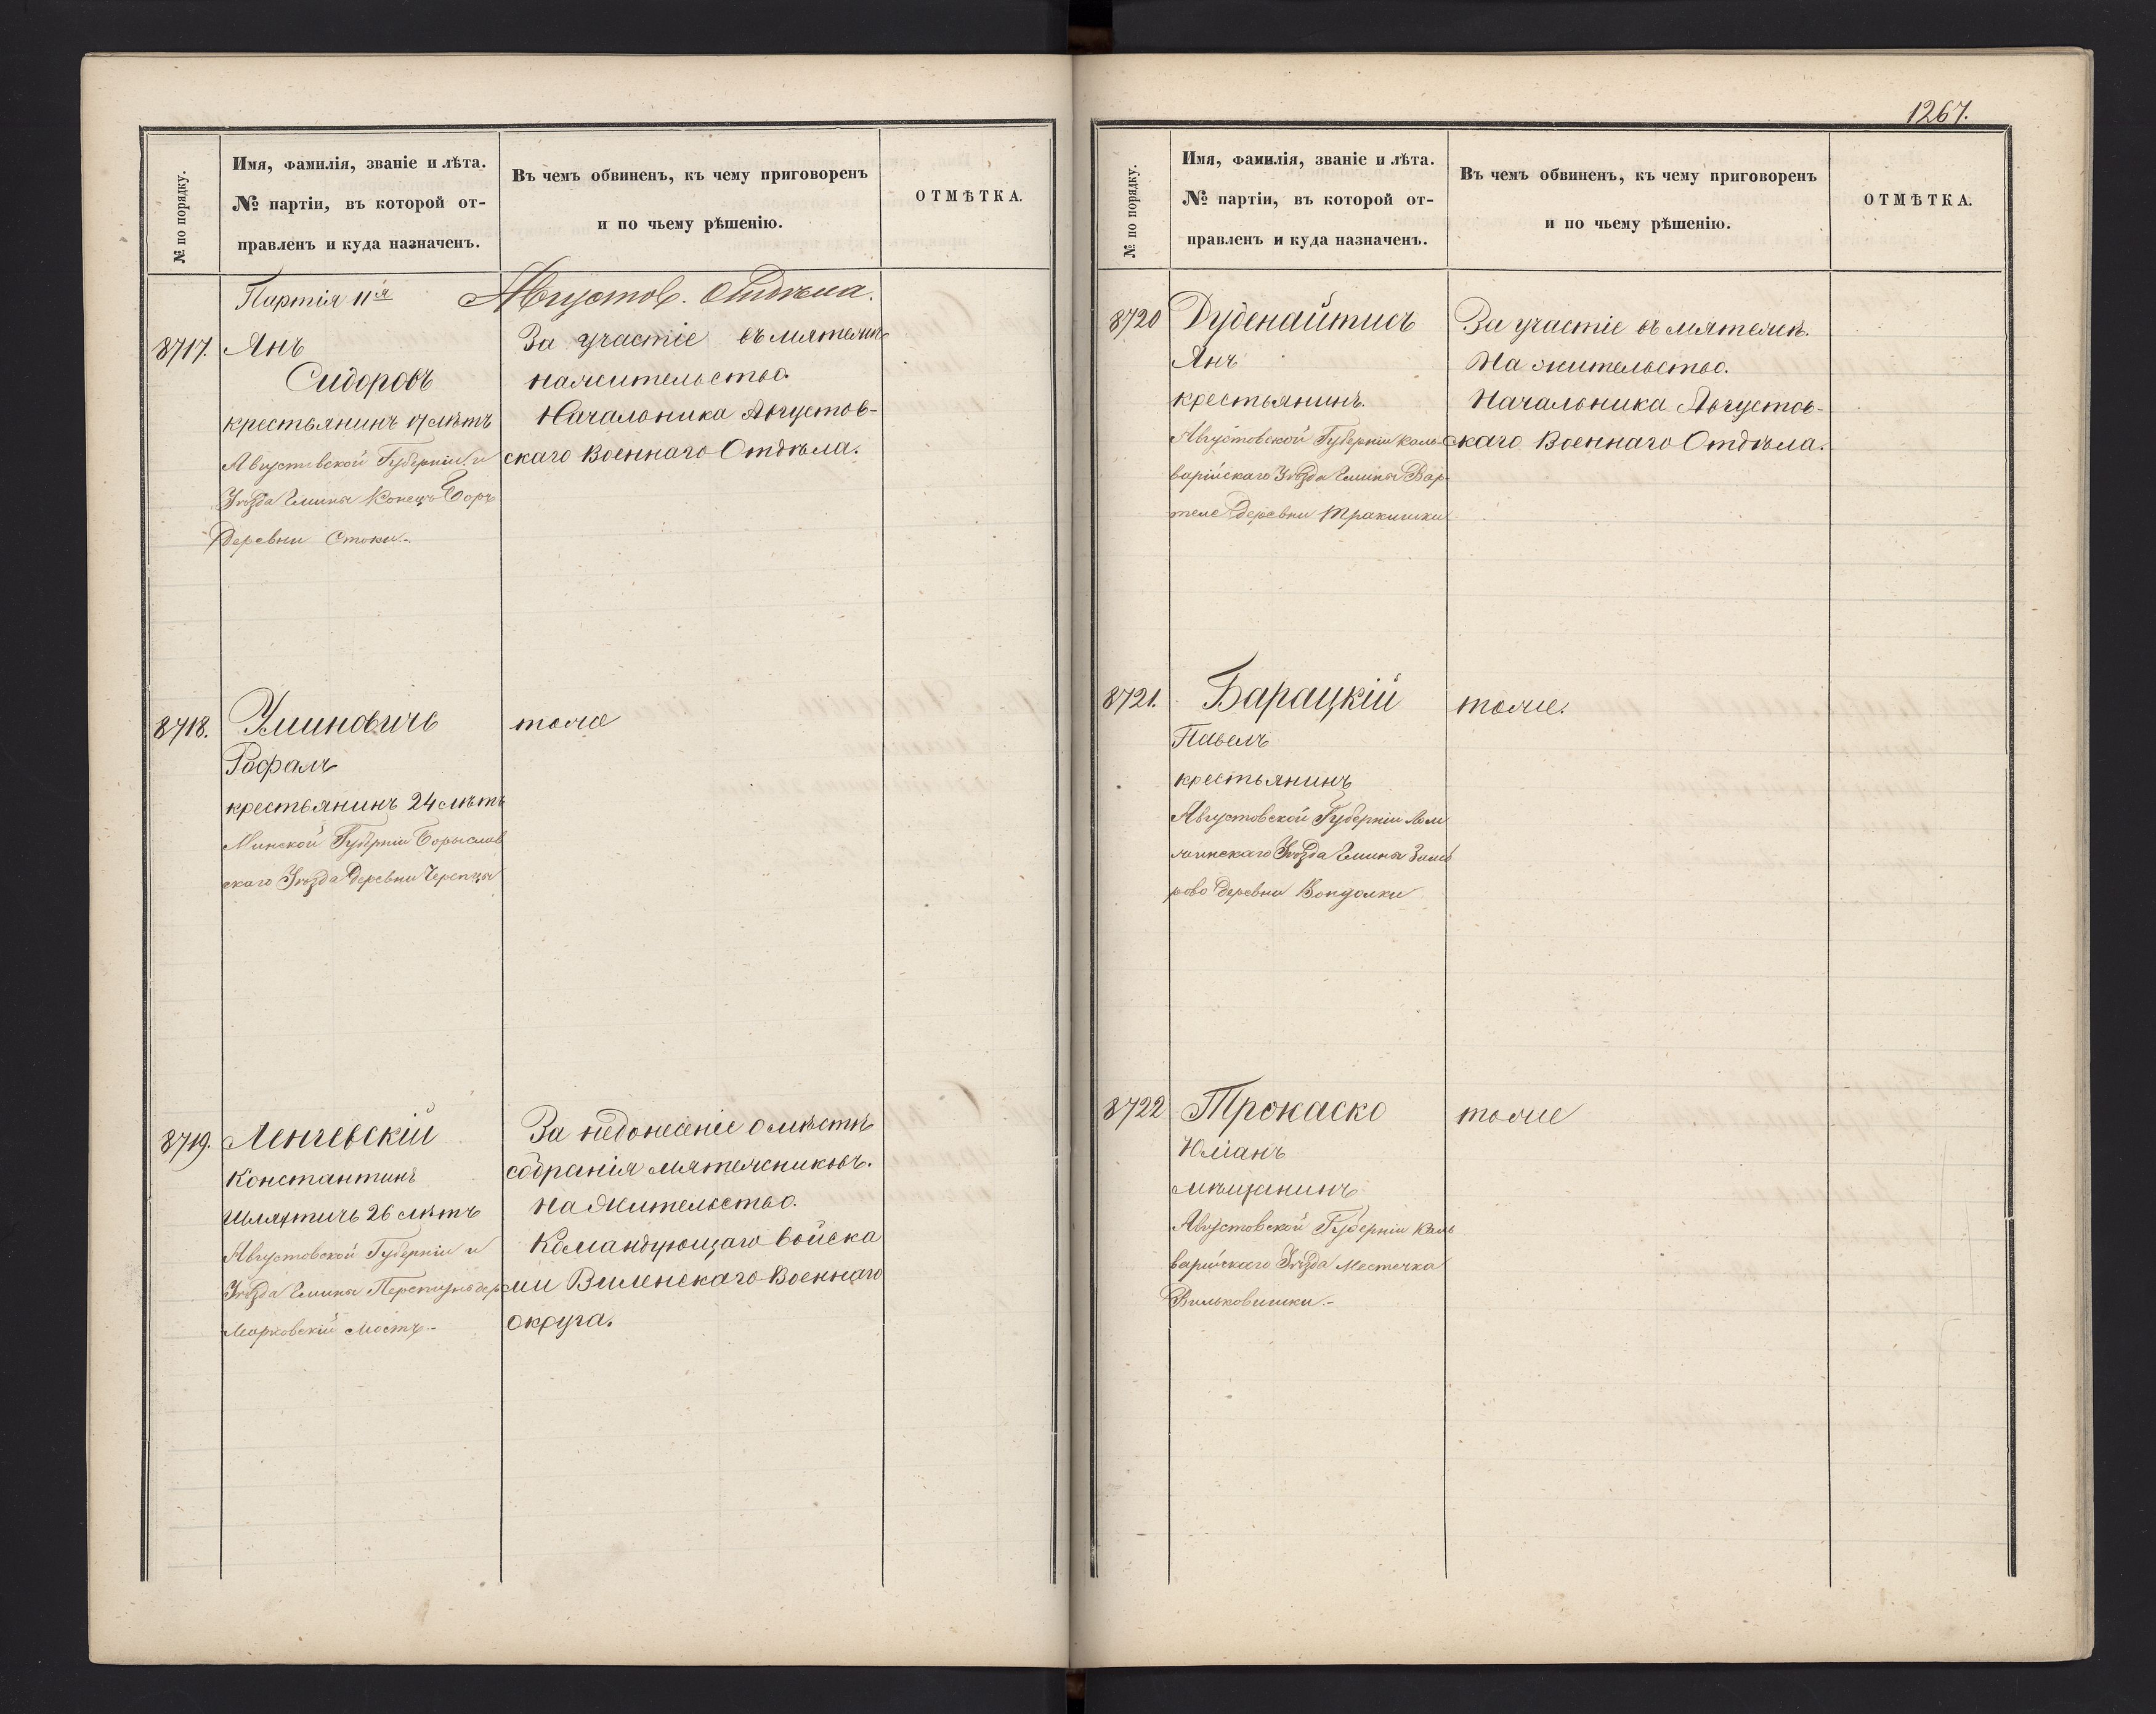 № по порядку.
Имя, фамилія, званіе и лѣта.
№ партіи, въ которой от-
правленъ и куда назначенъ.
Въ чемъ обвиненъ, къ чему приговоренъ
и по чьему рѣшенію.
ОТМѢТКА.
Партія 11я Августов. Отдѣла.
8717. Янъ
Сидоровъ
крестьянинъ 17 лѣтъ
Августовской Губерніи и
Уѣзда Гмины Конецъ Боръ
Деревни Стоки.-
За участіе въ мятежѣ
на жительство.
Начальника Августов-
скаго Военнаго Отдѣла.
8718. Улиновичъ
Рафалъ
крестьянинъ 24 лѣтъ
Минской Губерніи Борыслав
скаго Уѣзда Деревни Черепцы
тоже
8719. Ленчевскій
Константинъ
Шляхтичъ 26 лѣтъ
Августовской Губерніи и
Уѣзда Гмины дер
Марковскій Мостъ.-
За недонесеніе о мѣстѣ
собранія мятежниковъ.
На Жительство.
Командующаго войска
ми Виленскаго Военнаго
округа.
1267.
№ по порядку.
Имя, фамилія, званіе и лѣта.
№ партіи, въ которой от-
правленъ и куда назначенъ.
Въ чемъ обвиненъ, къ чему приговоренъ
и по чьему рѣшенію.
ОТМѢТКА.
8720 Дуденайтисъ
Янъ
крестьянинъ.
Августовской Губерніи Каль-
варійскаго Уѣзда Гмины Вар-
теле Деревни Тракишки
За участіе въ мятежѣ.
На жительство.
Начальника Августов-
скаго Военнаго Отдѣла.
8721. Барацкій
Павелъ
крестьянинъ
Августовской Губерніи Лом
жинскаго Уѣзда Гмины Замб
рово Деревни
тоже.
8722 Прокаско
Юліанъ
мѣщанинъ
Августовской Губерніи Каль
варійскаго Уѣзда Местечка
Вильковишки.-
тоже